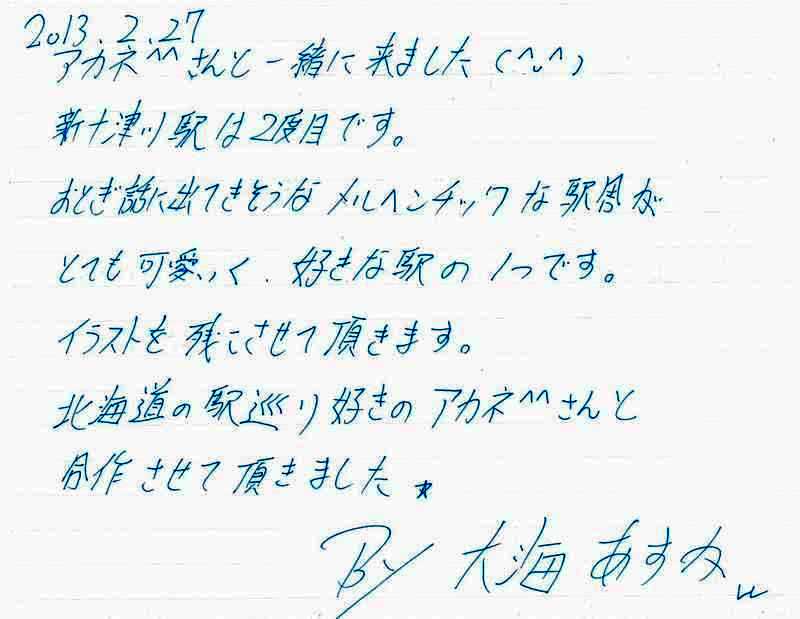 2013.2.27
アカネ^^さんと一緒に来ました(^ᴗ^)
新十津川駅は2度目です。
おとぎ話に出てきそうなメルヘンチックな駅舎が
とても可愛いく、好きな駅の1つです。
イラストを残させて頂きます。
北海道の駅巡り好きのアカネ^^さんと
合作させて頂きました★
By 大海あすみ